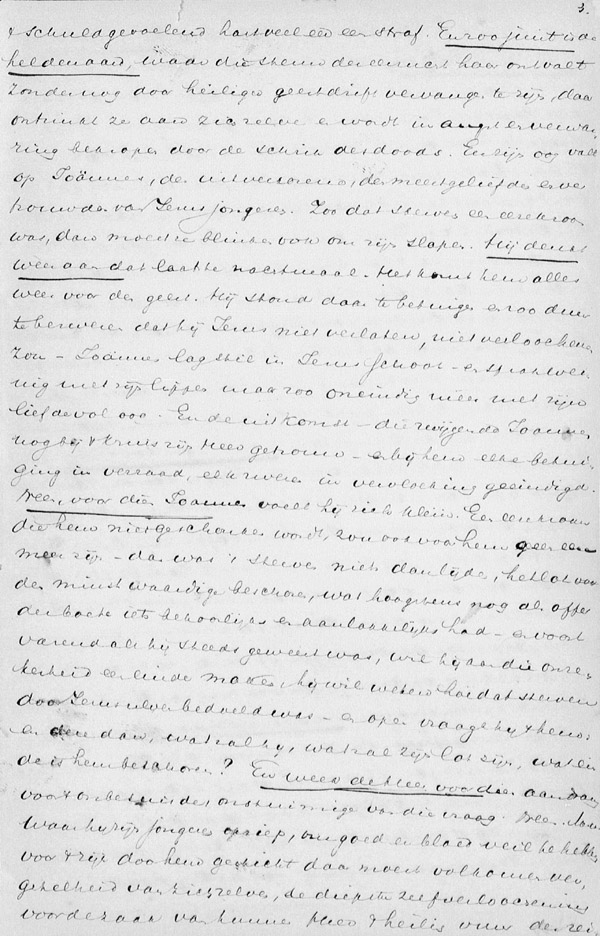 3.
& schuldgevoelend hart veel eer een straf. En zoo juist is de
heldenaard, waar die stem der eerzucht haar ontvalt
zonder nog door heiligen geestdrift vervangen te zijn, daar
ontzinkt ze aan zichzelve & wordt in angst en verwar
ring bekropen door de schrik des doods. En zijn oog valt
op Joännes, den uitverkorene, den meestgeliefde en ver
trouwde van Jezus jongeren. Zoo dat sterven een eerekroon
was, dan moest ze blinken ook om zijn slapen. Hij denkt
weer aan dat laatste nachtmaal. Het komt hem alles
weer voor den geest. Hij stond daar te betuigen en zoo duur
te bezweren dat hij Jezus niet verlaten, niet verloochenen
zou – Joännes lag stil in Jezus schoot – en sprak wei
nig met zijn lippen maar zoo oneindig meer met zijn
liefdevol oog. En de uitkomst – die zwijgende Joannes
nog bij 't kruis zijn Heer getrouw – en bij hem elke betui
ging in verraad, elk zweren in vervloeking geëindigd.
Neen, voor dien Joannes voelt hij zich klein. Een eerekroon
die hem niet geschonken wordt, zou ook voor hem geen eere
meer zijn – dan was 't sterven niets dan lijden, het lot voor
den minst waardige beschoren, wat hoogstens nog als offer
der boete iets behoorlijks en aanlokkelijks had – en voort
varend als hij steeds geweest was, wil hij aan die onze-
kerheid een einde maken, hij wil weten hoe dat sterven
door Jezus zelve bedoeld was – en open vraagt hij 't hem:
en deze dan, wat zal hij, wat zal zijn lot zijn, wat ein
de is hem beschoren? En weer de Heer voor dien aandrang
voor 't onbetuisde onstuimige van die vraag. Neen
waar hij zijn jongeren opriep, om goed en bloed veil te hebben
voor 't rijk door hem gesticht daar moest volkomen ver,
getelheid van zichzelve, de diepste zelfverloochening
voor de zaak van hunnen Heer 't heilig vuur der rei